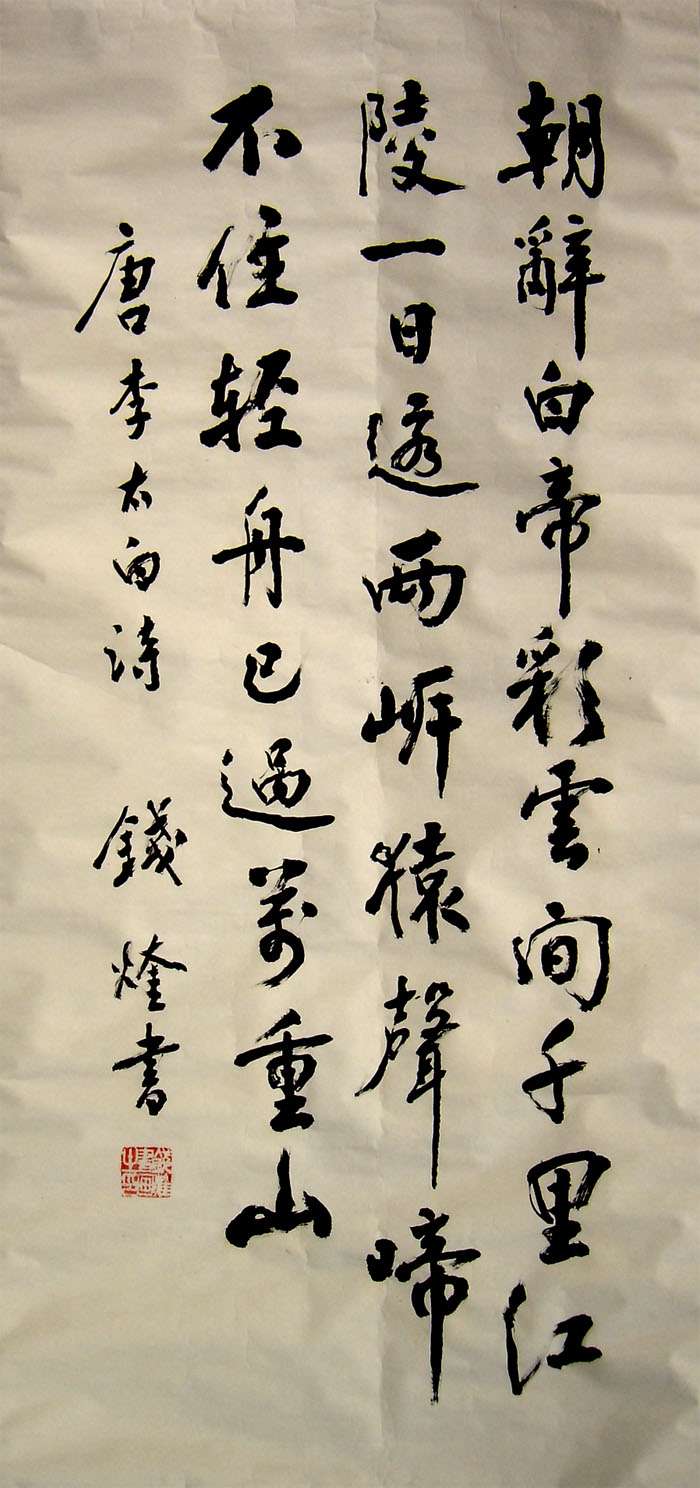 朝辭白帝彩雲間千里江
陵一日還兩岸猿聲啼
不住轻舟已過萬重山
唐李太白詩 錢書